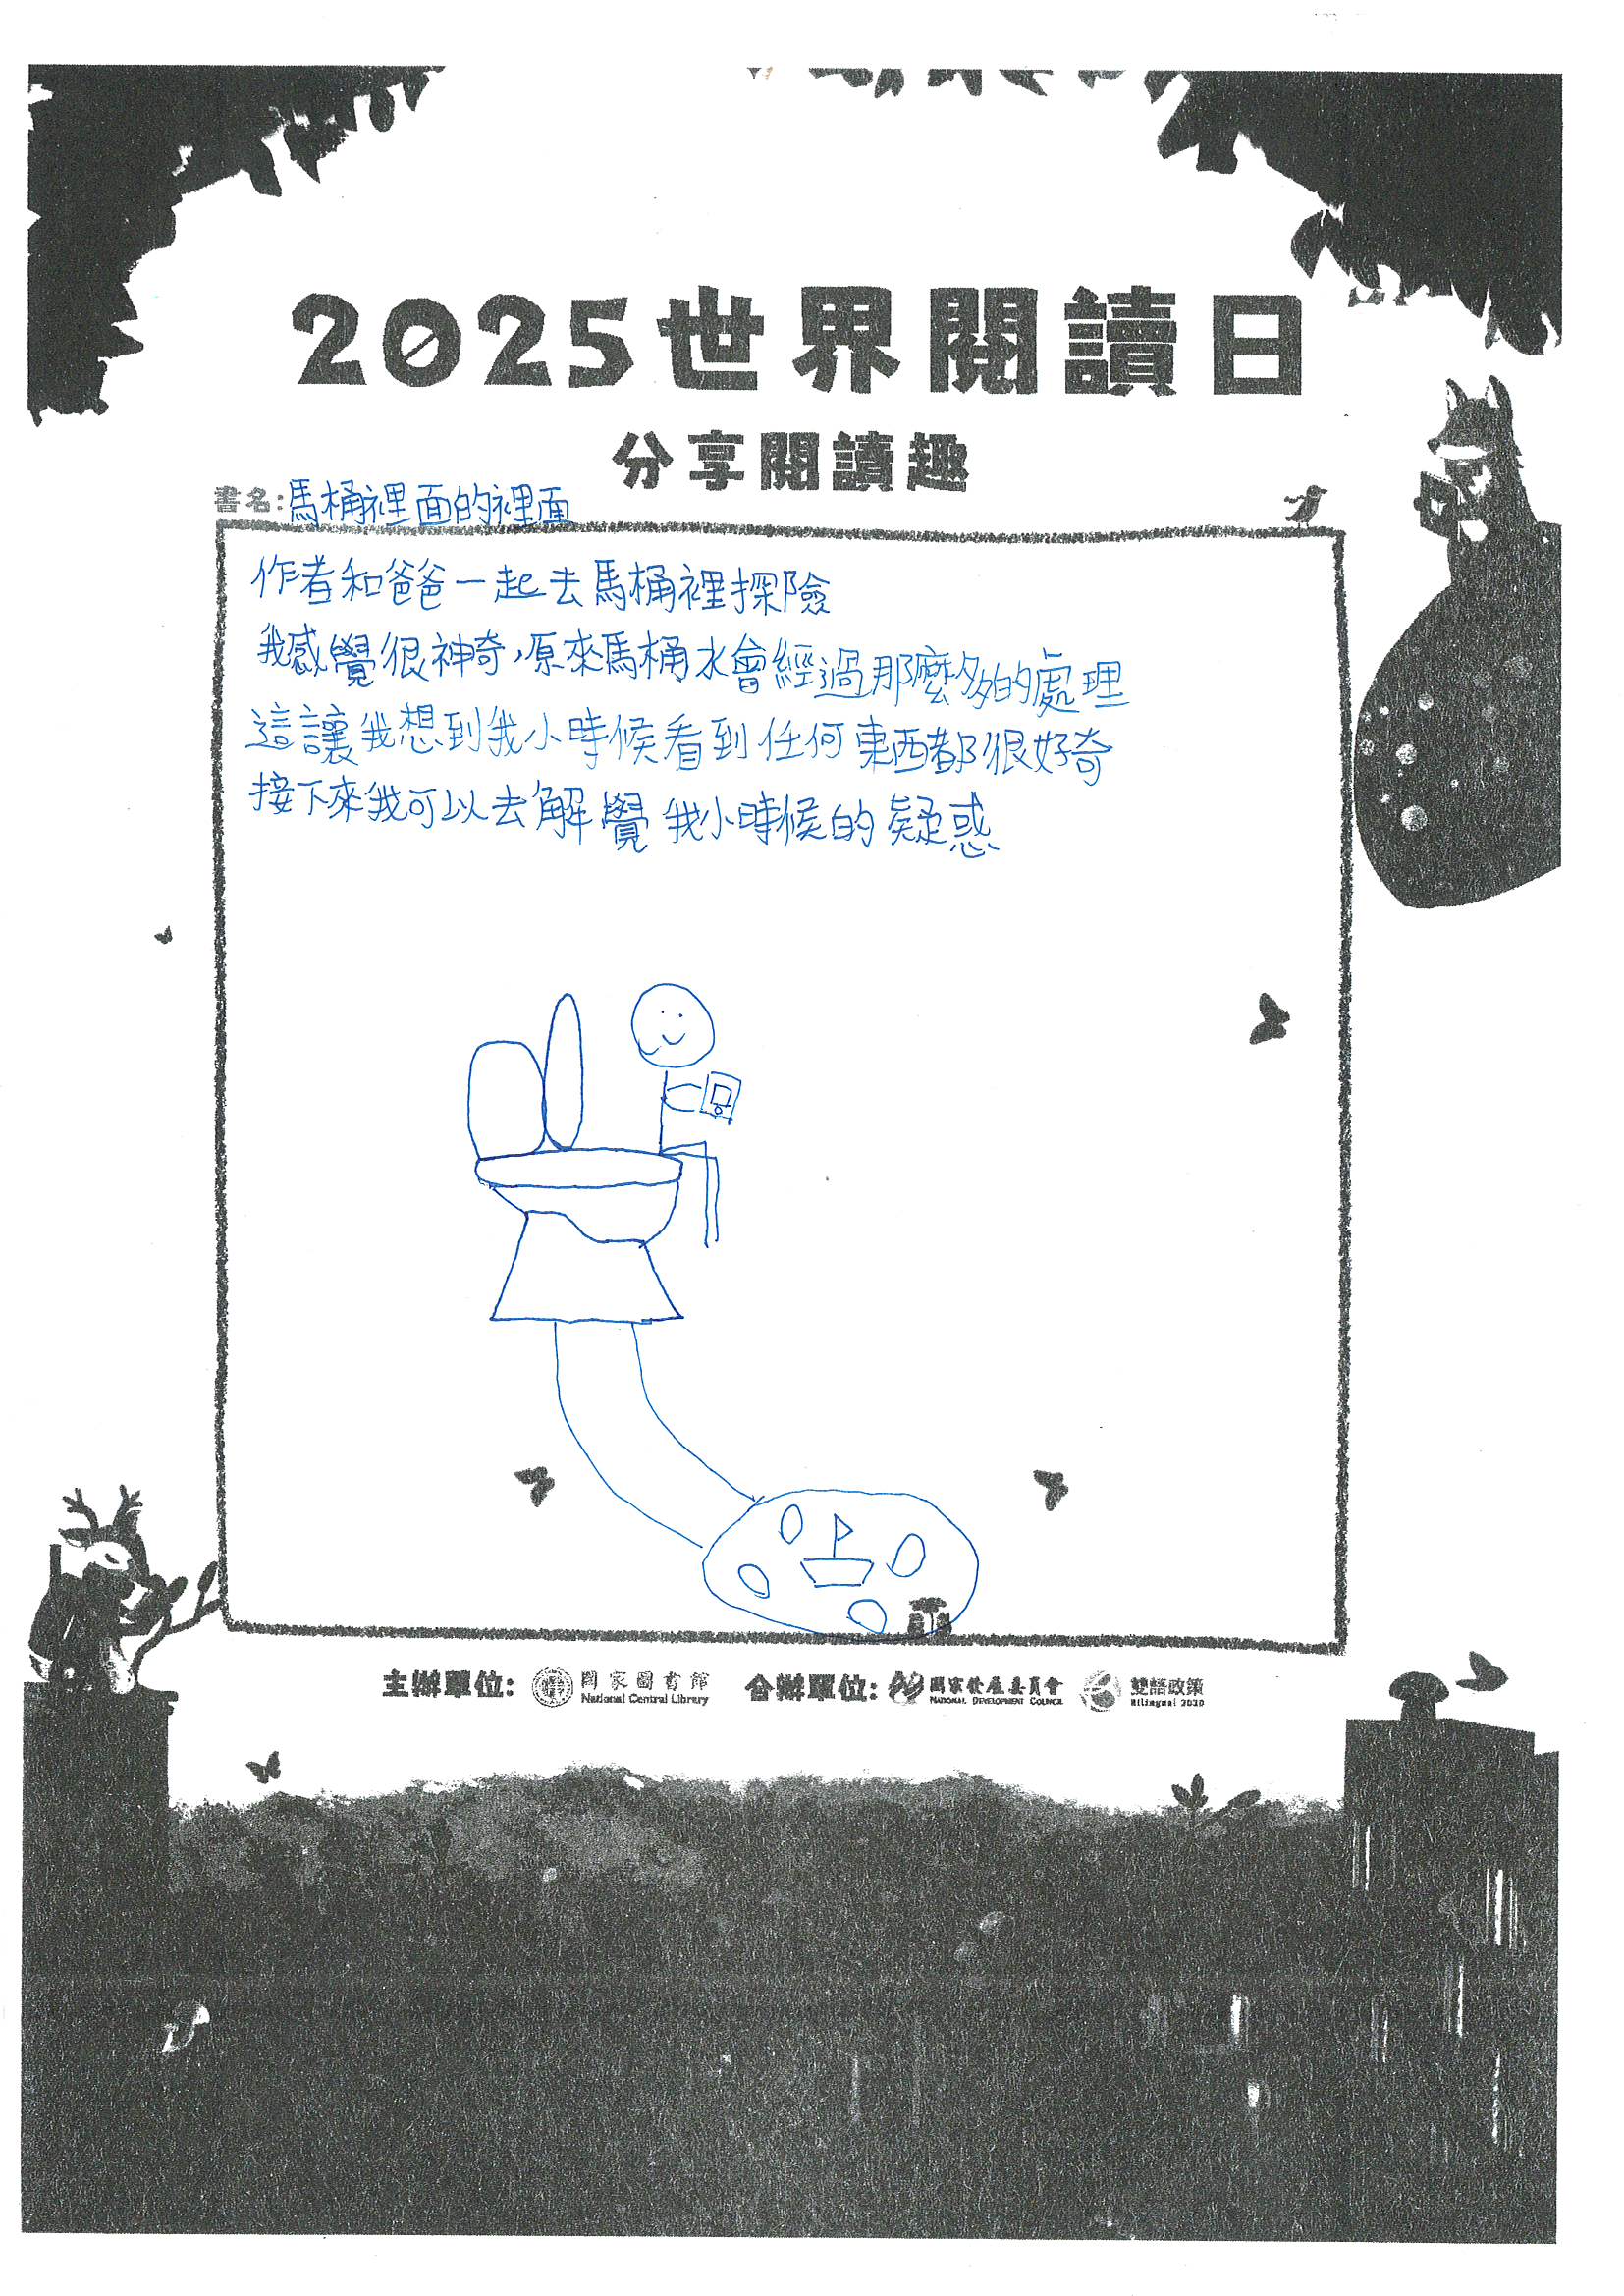 2025世界閱讀日
分享閱讀趣
書名:馬桶裡面的裡面
作者和爸爸一起去馬桶裡探險
我感覺很神奇,原來馬桶水會經過那麼多的處理
這讓我想到我小時候看到任何東西都很好奇
接下來我可以去解覺我小時候的疑惑
主辦單位: 國家圖書館 National Central Library 合辦單位: 國家發展委員會 NATIONAL DEVELOPMENT COUNCIL 雙語政策 Bilingual 2030